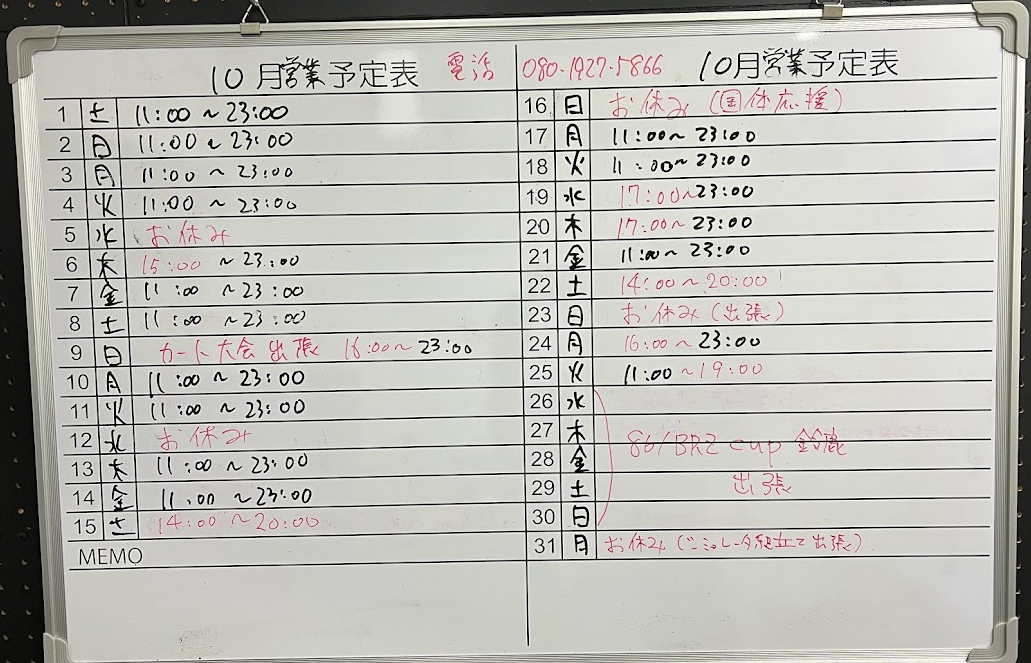 10月営業予定表 電話
1 土 11:00 ~ 23:00
2 日 11:00 ~ 23:00
3 月 11:00 ~ 23:00
4 火 11:00 ~ 23:00
5 水 お休み
6 木 15:00 ~ 23:00
7 金 11:00 ~ 23:00
8 土 11:00 ~ 23:00
9 日 カート大会出張 16:00~ 23:00
10 月 11:00 ~ 23:00
11 火 11:00 ~ 23:00
12 水 お休み
13 木 11:00 ~ 23:00
14 金 11.00 ~ 23:00
15 土 14:00 ~ 20:00
MEMO
080.1927.5866 10月営業予定表
16 日 お休み (国体応援)
17 月 11:00~ 23:00
18 火 11:00~ 23:00
19 水 17:00~23:00
20 木 17:00~ 23:00
21 金 11:00~ 23:00
22 土 14:00~ 20:00
23 日 お休み (出張)
24 月 16:00~ 23:00
25 火 11:00 ~19:00
26 水
27 木 86/BRZ cup 鈴鹿
28 金
29 土 出張
30 日
31 月 お休み (シミュレータ組立て出張)